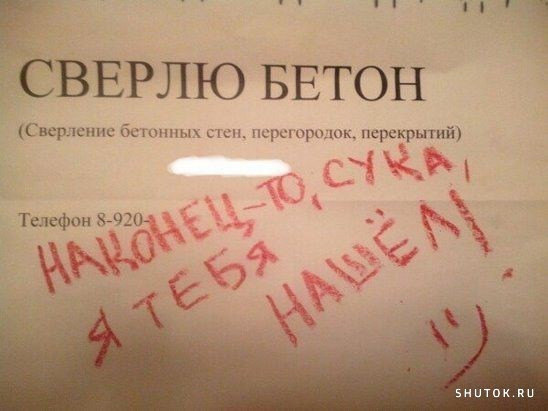 СВЕРЛЮ БЕТОН
(Сверление бетонных стен, перегородок, перекрытий)
Телефон 8-920-
НАКОНЕЦ-ТО, СУКА,
Я ТЕБЯ
НАШЁЛ!
:)
SHUTOK.RU